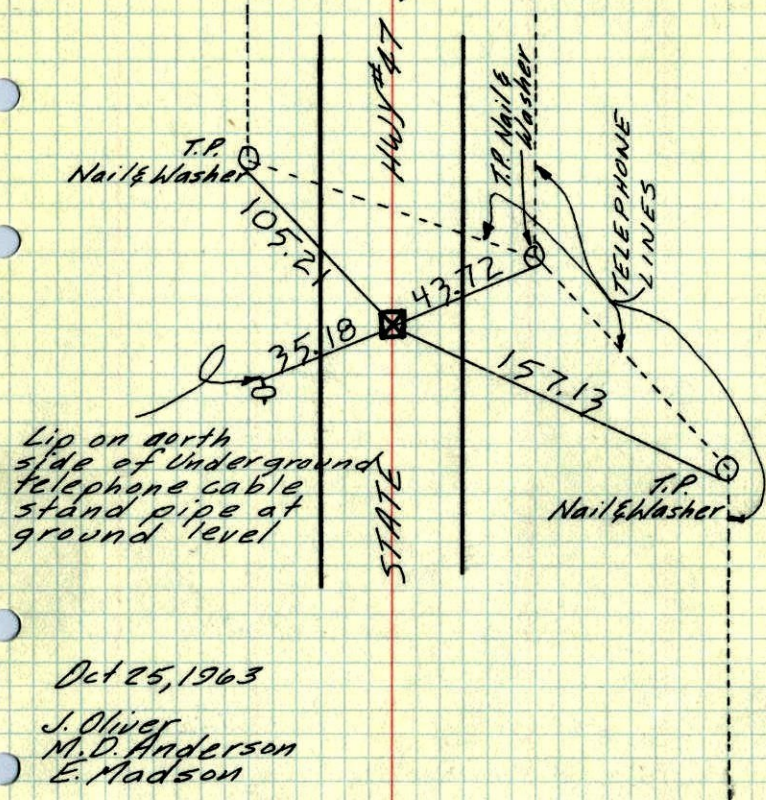 HWY #47
T.P. Nail &
Washer
T.P.
Nail & Washer
TELEPHONE
LINES
105.21
43.72
35.18
157.13
Lip on north
side of Underground
telephone cable
stand pipe at
ground level
STATE
T.P.
Nail & Washer
Oct 25, 1963
J. Oliver
M.D. Anderson
E. Madson